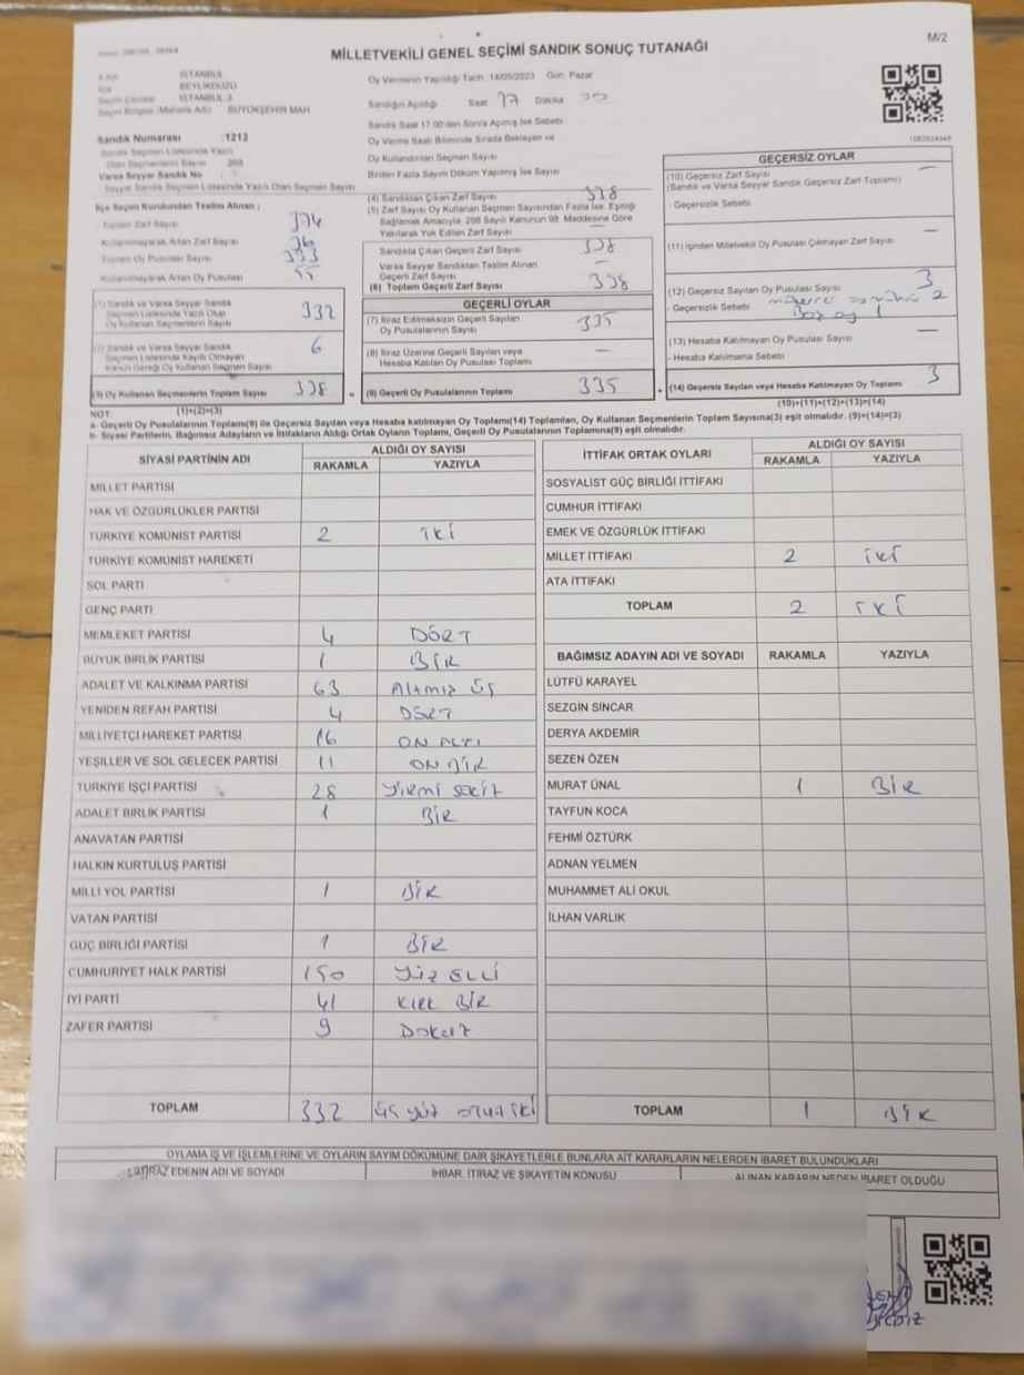 M/2
MİLLETVEKİLİ GENEL SEÇİMİ SANDIK SONUÇ TUTANAĞI
İSTANBUL
BEYLİKDÜZÜ
İSTANBUL 3
BÜYÜKŞEHİR MAH
Sandık Numarası :1212
Oy Vermenin Yapıldığı Tarih 14/05/2023 Gün: Pazar
Sandığın Açıldığı Saat 17 Dakika
Sandık Saat 17:00'den Sonra Açılmış İse Sebebi
Oy Verme Saati Bitiminde Sırada Bekleyen ve
Oy Kullandırılan Seçmen Sayısı
Birden Fazla Sayım Döküm Yapılmış İse Sayısı
Varsa Seyyar Sandık No
İlçe Seçim Kurulundan Teslim Alınan ;
Toplam Zarf Sayısı 374
Kullanılmayarak Artan Zarf Sayısı 36
Toplam Oy Pusulası Sayısı
Kullanılmayarak Artan Oy Pusulası 55
(1) Sandık ve Varsa Seyyar Sandık
Seçmen Listesinde Yazılı Olup
Oy Kullanan Seçmenlerin Sayısı 332
(2) Sandık ve Varsa Seyyar Sandık
Seçmen Listesinde Kayıtlı Olmayan
Kanun Gereği Oy Kullanan Seçmen Sayısı 6
(3) Oy Kullanan Seçmenlerin Toplam Sayısı 338
(1)+(2)=(3)
(4) Sandıktan Çıkan Zarf Sayısı 338
(5) Zarf Sayısı Oy Kullanan Seçmen Sayısından Fazla İse, Eşitliği
Sağlamak Amacıyla, 298 Sayılı Kanunun 98. Maddesine Göre
Yakılarak Yok Edilen Zarf Sayısı —
Sandıkta Çıkan Geçerli Zarf Sayısı 338
Varsa Seyyar Sandıktan Teslim Alınan
Geçerli Zarf Sayısı —
(6) Toplam Geçerli Zarf Sayısı 338
GEÇERLİ OYLAR
(7) İtiraz Edilmeksizin Geçerli Sayılan
Oy Pusulalarının Sayısı 335
(8) İtiraz Üzerine Geçerli Sayılan veya
Hesaba Katılan Oy Pusulası Toplamı —
(9) Geçerli Oy Pusulalarının Toplamı 335
GEÇERSİZ OYLAR
(10) Geçersiz Zarf Sayısı —
(Sandık ve Varsa Seyyar Sandık Geçersiz Zarf Toplamı)
- Geçersizlik Sebebi
(11) İçinden Milletvekili Oy Pusulası Çıkmayan Zarf Sayısı —
(12) Geçersiz Sayılan Oy Pusulası Sayısı 3
- Geçersizlik Sebebi 2
Boş oy 1
(13) Hesaba Katılmayan Oy Pusulası Sayısı —
- Hesaba Katılmama Sebebi
(14) Geçersiz Sayılan veya Hesaba Katılmayan Oy Toplamı 3
(10)+(11)+(12)+(13)=(14)
NOT:
a- Geçerli Oy Pusulalarının Toplamı(9) ile Geçersiz Sayılan veya Hesaba katılmayan Oy Toplamı(14) Toplamları, Oy Kullanan Seçmenlerin Toplam Sayısına(3) eşit olmalıdır. (9)+(14)=(3)
b- Siyasi Partilerin, Bağımsız Adayların ve İttifakların Aldığı Ortak Oyların Toplamı, Geçerli Oy Pusulalarının Toplamına(9) eşit olmalıdır.
SİYASİ PARTİNİN ADI ALDIĞI OY SAYISI
RAKAMLA YAZIYLA
MİLLET PARTİSİ
HAK VE ÖZGÜRLÜKLER PARTİSİ
TÜRKİYE KOMÜNİST PARTİSİ 2 İKİ
TÜRKİYE KOMÜNİST HAREKETİ
SOL PARTİ
GENÇ PARTİ
MEMLEKET PARTİSİ 4 DÖRT
BÜYÜK BİRLİK PARTİSİ 1 BİR
ADALET VE KALKINMA PARTİSİ 63 Altmış Üç
YENİDEN REFAH PARTİSİ 4 DÖRT
MİLLİYETÇİ HAREKET PARTİSİ 16 ON ALTI
YEŞİLLER VE SOL GELECEK PARTİSİ 11 ON BİR
TÜRKİYE İŞÇİ PARTİSİ 28 Yirmi sekiz
ADALET BİRLİK PARTİSİ 1 BİR
ANAVATAN PARTİSİ
HALKIN KURTULUŞ PARTİSİ
MİLLİ YOL PARTİSİ 1 BİR
VATAN PARTİSİ
GÜÇ BİRLİĞİ PARTİSİ 1 BİR
CUMHURİYET HALK PARTİSİ 150 Yüz ELLİ
İYİ PARTİ 41 KIRK BİR
ZAFER PARTİSİ 9 Dokuz
TOPLAM 332 üç yüz otuz iki
İTTİFAK ORTAK OYLARI ALDIĞI OY SAYISI
RAKAMLA YAZIYLA
SOSYALİST GÜÇ BİRLİĞİ İTTİFAKI
CUMHUR İTTİFAKI
EMEK VE ÖZGÜRLÜK İTTİFAKI
MİLLET İTTİFAKI 2 İKİ
ATA İTTİFAKI
TOPLAM 2 İKİ
BAĞIMSIZ ADAYIN ADI VE SOYADI RAKAMLA YAZIYLA
LÜTFÜ KARAYEL
SEZGİN SİNCAR
DERYA AKDEMİR
SEZEN ÖZEN
MURAT ÜNAL 1 BİR
TAYFUN KOCA
FEHMİ ÖZTÜRK
ADNAN YELMEN
MUHAMMET ALİ OKUL
İLHAN VARLIK
TOPLAM 1 BİR
OYLAMA İŞ VE İŞLEMLERİNE VE OYLARIN SAYIM DÖKÜMÜNE DAİR ŞİKAYETLERLE BUNLARA AİT KARARLARIN NELERDEN İBARET BULUNDUKLARI
İTİRAZ EDENİN ADI VE SOYADI İHBAR, İTİRAZ VE ŞİKAYETİN KONUSU ALINAN KARARIN NEDEN İBARET OLDUĞU